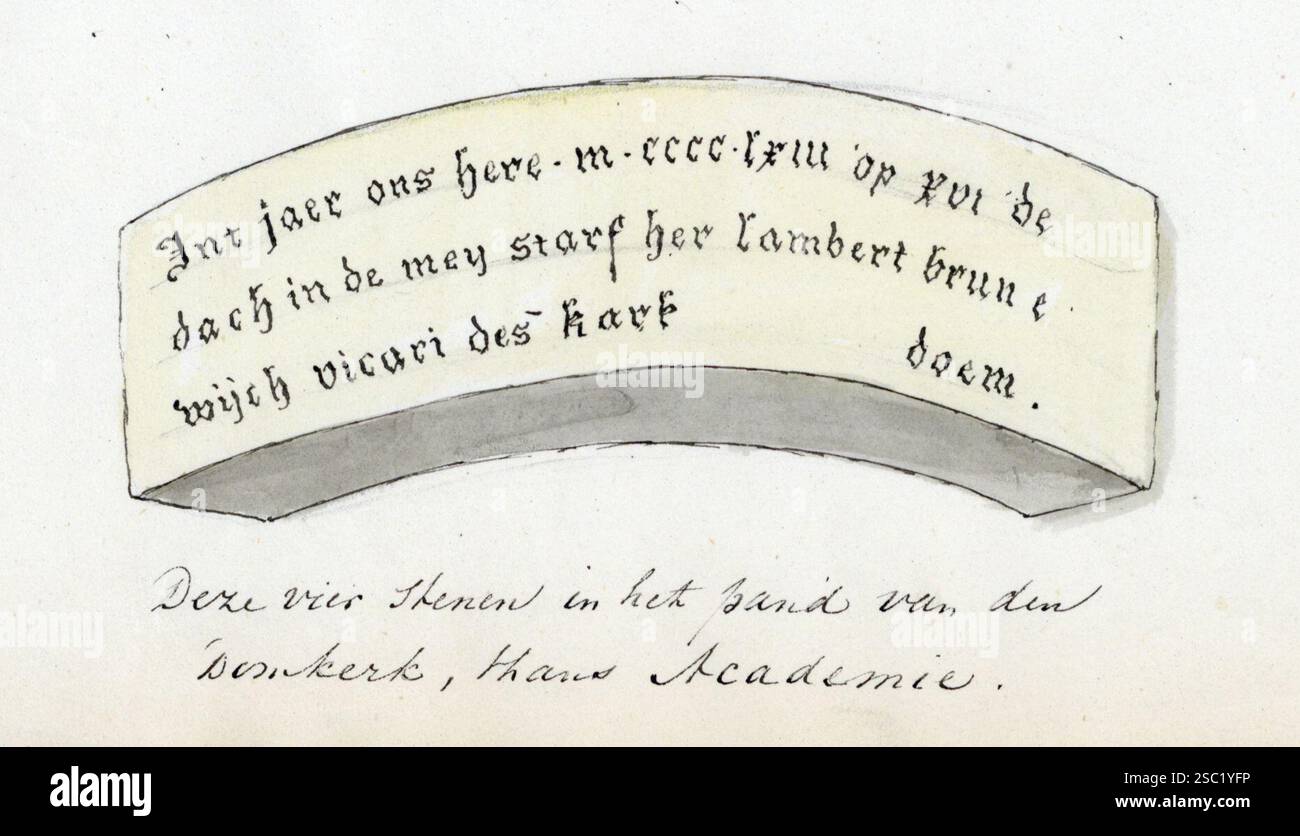 Int jaer ons here · m · cccc · lxiii op xvi de
dach in de mey starf her lambert brun e
wijch vicari des kark doem .
Deze vier stenen in het pand van den
Domkerk, thans Academie .
alamy
Image ID: 2SC1YFP
www.alamy.com